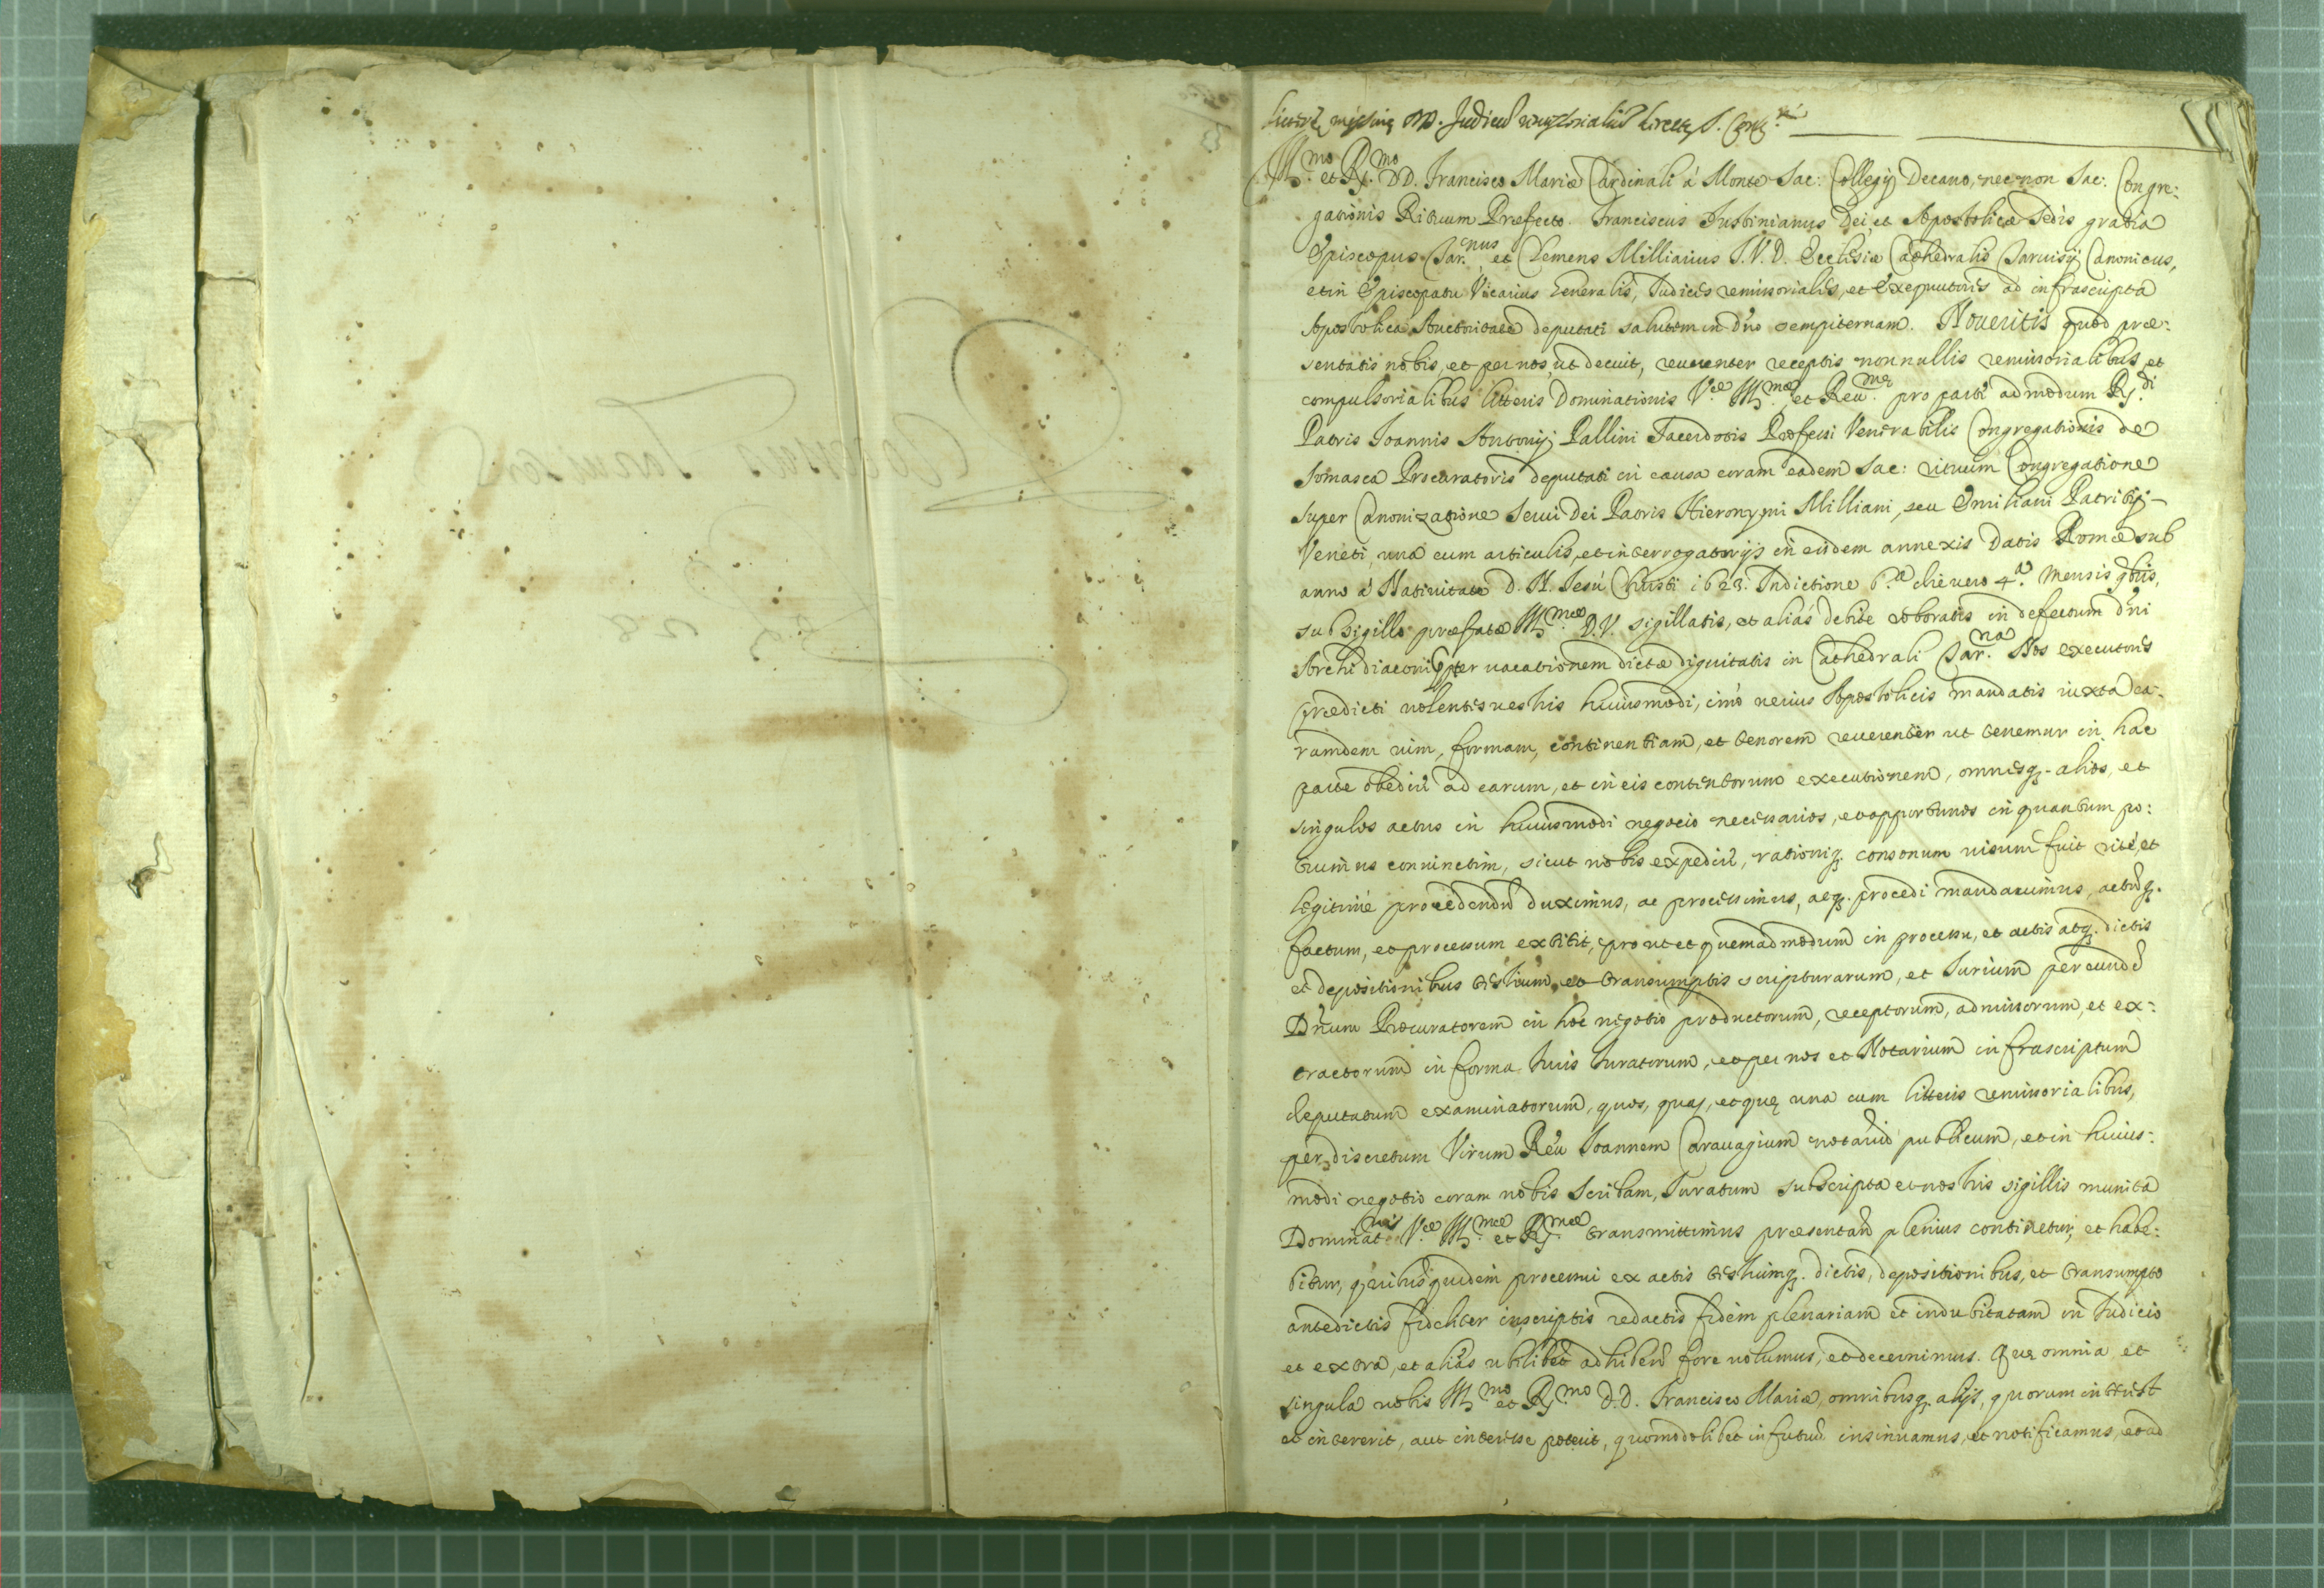 Litteræ missiuæ DD. Judicum directæ S. Cong.ni
Ill.mo et R.mo DD. Francisco Mariæ Cardinali à Monte Sac: Collegij Decano, nec non Sac: Congre:
gationis Rituum Præfecto. Franciscus Justinianus Dei, et Apostolicæ Sedis gratia
Episcopus Tar.nus et Clemens Milliarius J.V.D. Ecclesiæ Cathedralis Taruisij Canonicus,
et in Episcopatu Vicarius Generalis, Judices remissoriales, et Exequutores ad infrascripta
Apostolica Auctoritate deputati salutem in d'no sempiternam. Noueritis quod præ:
sentatis nobis, et per nos, ut decuit, reuerenter receptis nonnullis remissorialibus, et
compulsorialibus litteris Dominationis V.æ Ill.mæ et Reu.mæ pro parte admodum R.di
Patris Joannis Antonij Pallini Sacerdotis Professi Venerabilis Congregationis de
Somasca Procuratoris deputati in causa coram eadem Sac: rituum Congregatione
super Canonizatione Serui Dei Patris Hieronymi Milliani, seu Emiliani Patritij
Veneti, una cum articulis, et interrogatorijs in eisdem annexis Datis Romæ sub
anno à Natiuitate D. N. Jesu Christi 1623. Indictione 6.a die uero 4.a Mensis 9bris,
sub sigillo præfatæ Ill.mæ D.V. sigillatis, et aliàs debite roboratis in defectum d'ni
Archidiaconi propter uacationem dictæ dignitatis in Cathedrali Tar.na Nos executores
prædicti uolentes uestris huiusmodi, imò uerius Apostolicis mandatis iuxta ea:
rumdem uim, formam, continentiam, et tenorem reuerenter ut tenemur in hac
parte obedire ad earum, et in eis contentorum executionem, omnesq. alios, et
singulos actus in huiusmodi negocio necessarios, et opportunos in quantum po:
tuimus coniunctim, sicut nobis expedire, rationiq. consonum uisum fuit ritè, et
legitimè procedendum duximus, ac processimus, acq. procedi mandauimus, actumq.
factum, et processum extitit, prout et quemadmodum in processu, et actis atq. dictis
et depositionibus testium, et transumptis scripturarum, et Jurium per eundem
D'num Procuratorem in hoc negotio productorum, receptorum, admissorum, et ex:
tractorum in forma Juris Juratorum, et per nos et Notarium infrascriptum
deputatum examinatorum, quos, quas, et quæ una cum litteris remissorialibus,
per discretum Virum Reu. Joannem Carauagium notarium publicum, et in huius:
modi negotio coram nobis Scribam, Juratum subscripta et nostris sigillis munita
Dominat.nis V.æ Ill.mæ et R.mæ transmittimus præsentand. plenius continetur, et habe:
bitur, quibus quidem processui ex actis testiumq. dictis, depositionibus, et transumpto
antedictis fideliter inscriptis redactis fidem plenariam et indubitatam in Judicio
et extra, et aliàs ubilibet adhiberi fore uolumus, et decernimus. Quæ omnia et
singula uobis Ill.mo et R.mo D.D. Francisco Mariæ, omnibusq. alijs, quorum interest
et intererit, aut interesse poterit, quomodolibet in futurum insinuamus, et notificamus, et ad